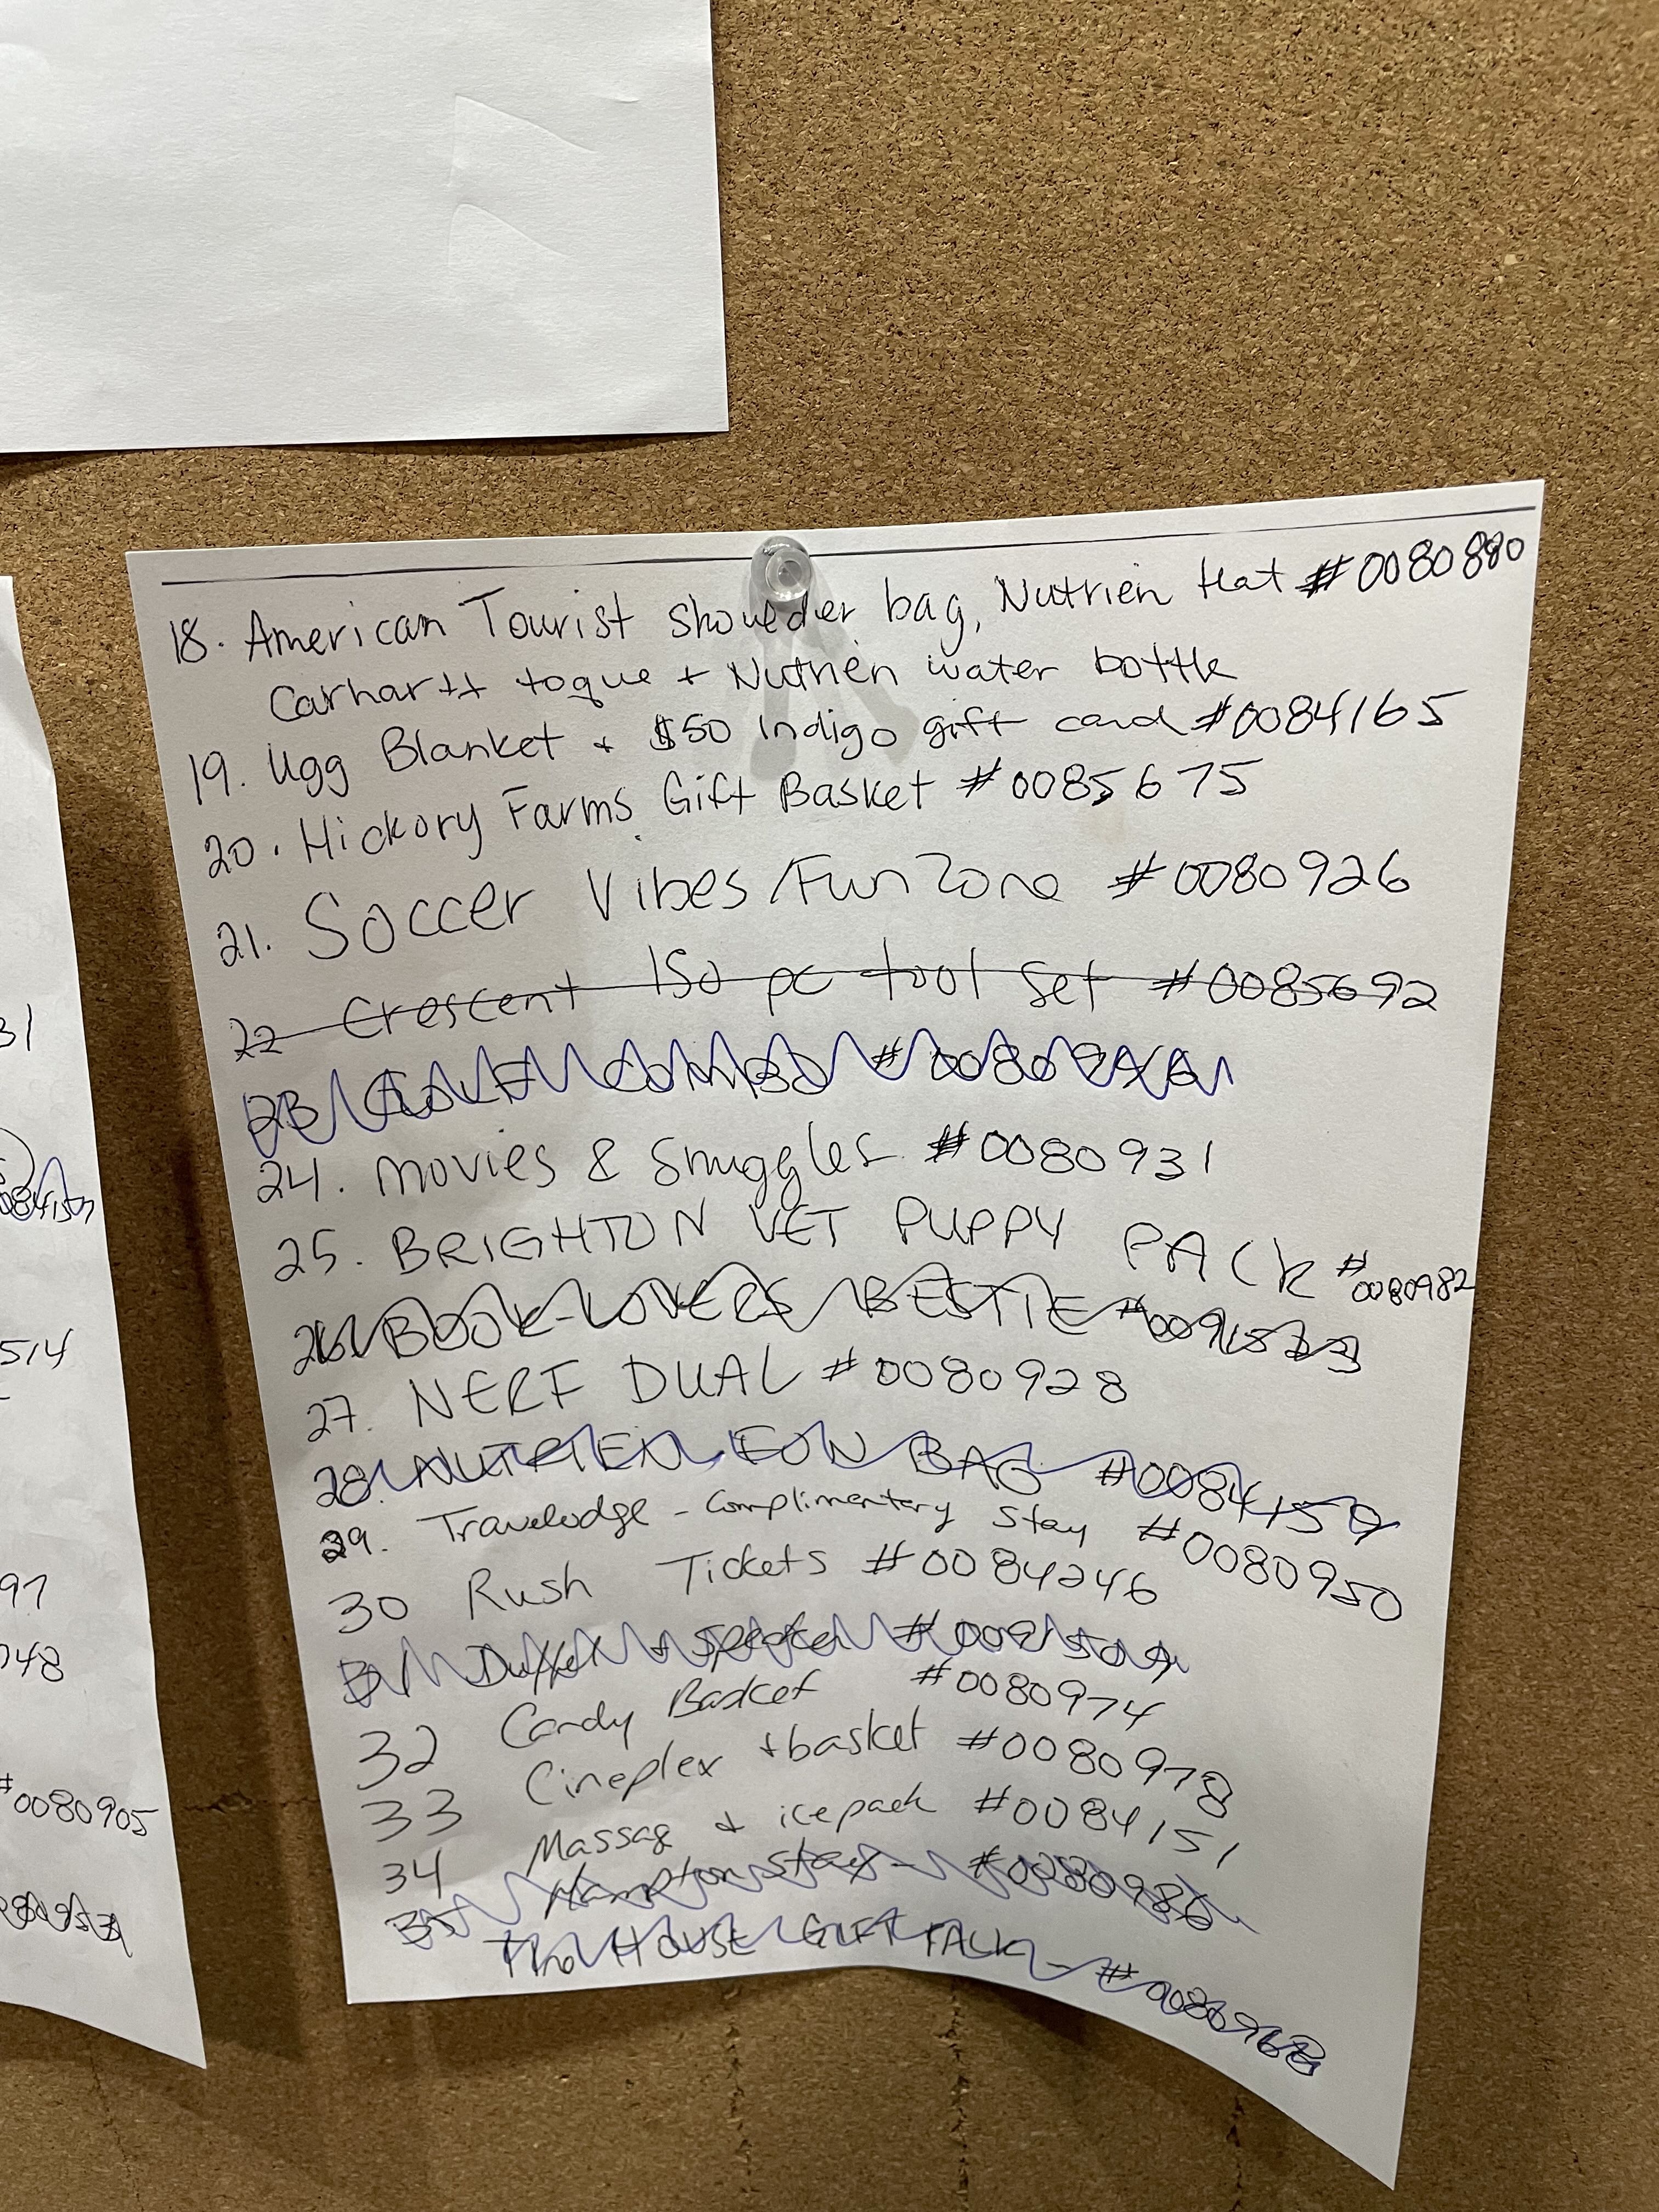 18. American Tourist shoulder bag, Nutrien Hat #0080880
Carhartt toque + Nutrien water bottle
19. Ugg Blanket + $50 Indigo gift card #0084165
20. Hickory Farms Gift Basket #0085675
21. Soccer Vibes/Fun Zone #0080926
22 Crescent 150 pc tool set #0085692
23 GOLF COMBO
24. Movies & Snuggles #0080931
25. BRIGHTON VET PUPPY PACK #0080982
26. BOOK-LOVERS BESTIE
27. NERF DUAL #0080928
28. NUTRIEN FUN BAG #0084159
29. Travelodge - Complimentary Stay #0080950
30 Rush Tickets #0084246
31 Duffel + speaker #0091509
32 Candy Basket #0080974
33 Cineplex + basket #0080978
34 Massag + icepack #0084151
35 Hampton Stay - #0080986
The HOUSE GIFT PACK -
31
0084157
514
97
748
#0080905